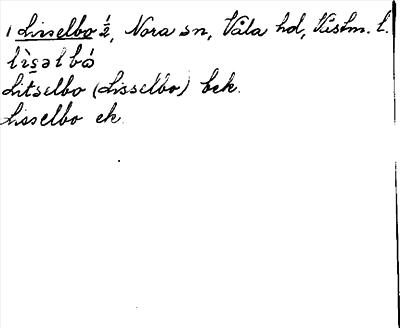 1 Lisselbo ½, Nora sn, Våla hd, Västm. l.
lìs̱əlbó
Litselbo (Lisselbo) bek.
Lisselbo ek.